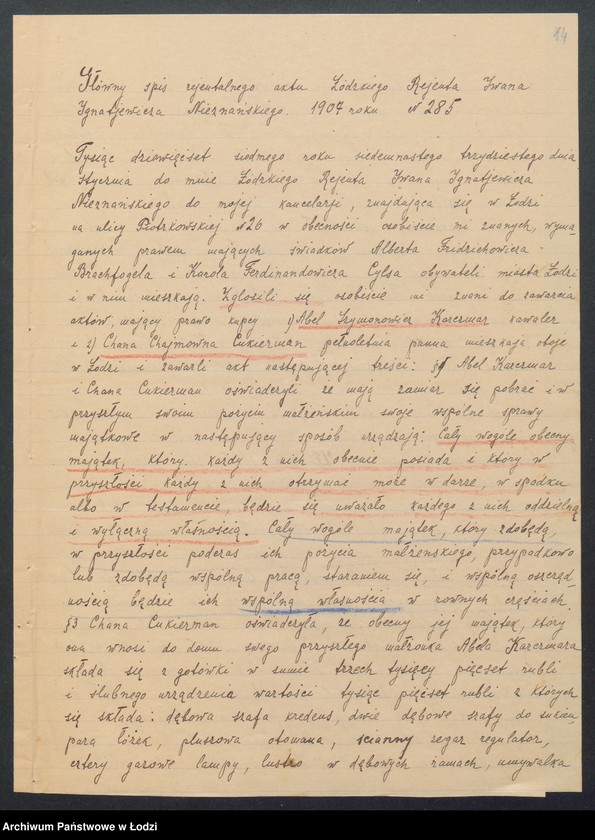 14
Główny spis rejentalnego aktu Łódzkiego Rejenta Iwana
Ignatjewicza Nieznańskiego. 1904 roku N 285
Tysiąc dziewięćset siódmego roku siedemnastego trzydziestego dnia
stycznia do mnie Łodzkiego Rejenta Iwana Ignatjewicza
Nieznańskiego do mojej kancelarji, znajdująca się w Łodzi
na ulicy Piotrkowskiej N26 w obecności osobiście mi znanych, wyma-
ganych prawem mających świadków Alberta Fridrichowicza -
Brachfogela i Karola Ferdinandowicza Cylsa obywateli miasta Łodzi
i w nim mieszkają. Zgłosili się osobiście mi znani do zawarcia
aktów, mający prawo kupcy 1) Abel Szymonowicz Karcmar kawaler
i 2) Chana Chajmowna Cukierman pełnoletnia panna mieszkają oboje
w Łodzi i zawarli akt następującej treści: §1 Abel Karcmar
i Chana Cukierman oświadczyli że mają zamiar się pobrać i w
przyszłym swoim pożyciu małżeńskim swoje wspólne sprawy
majątkowe w następujący sposób urządzają: Cały wogóle obecny
majątek, który każdy z nich obecnie posiada i który w
przyszłości każdy z nich otrzymać może w darze, w spadku
albo w testamencie, będzie się uważało każdego z nich oddzielną
i wyłączną własnością. Cały wogóle majątek, który zdobędą,
w przyszłości podczas ich pożycia małżeńskiego, przypadkowo
lub zdobędą wspólną pracą, staraniem się, i wspólną oszczęd-
nością będzie ich wspólną własnością w rownych częściach.
§3 Chana Cukierman oświadczyła, że obecny jej majątek, który
ona wnosi do domu swego przyszłego małżonka Abela Karczmara
składa się z gotówki w sumie trzech tysięcy pięcset rubli
i ślubnego urządzenia wartości tysiąc pięcset rubli z których
się składa: dębowa szafa kredens, dwie dębowe szafy do sukien,
para łóżek, pluszowa otomana, scianny zegar regulator,
cztery gazowe lampy, lustro w dębowych ramach, umywalka
Archiwum Państwowe w Łodzi